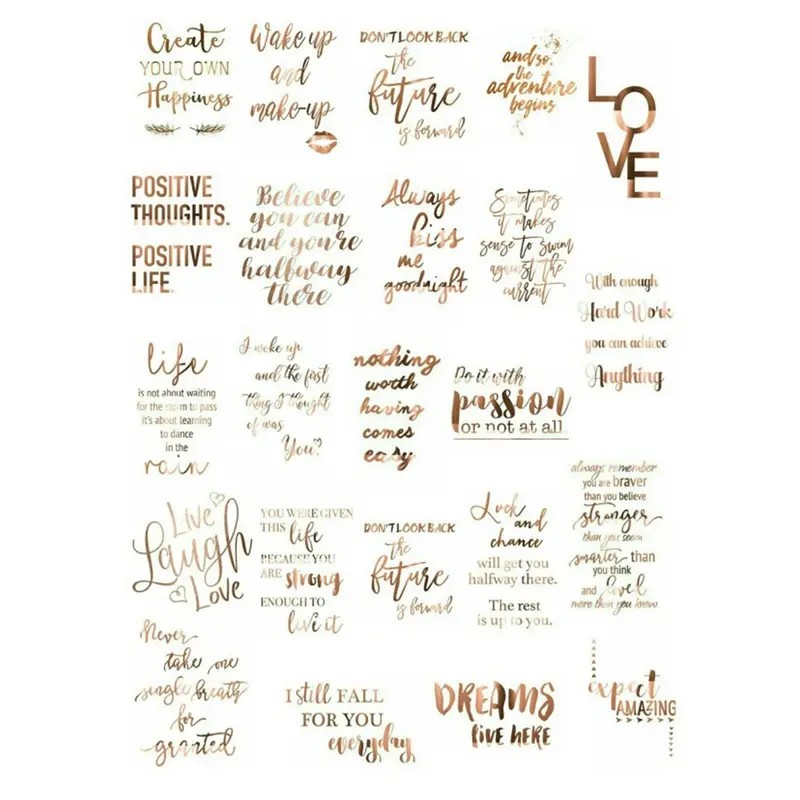 Create
YOUR OWN
Happiness
Wake up
and
make-up
DON'T LOOK BACK
the
future
is forward
and so
the
adventure
begins
LOVE
POSITIVE
THOUGHTS.
POSITIVE
LIFE.
Believe
you can
and you're
halfway
there
Always
kiss
me
goodnight
Sometimes
it makes
sense to swim
against the
current
With enough
Hard Work
you can achieve
Anything
life
is not about waiting
for the storm to pass
it's about learning
to dance
in the
rain
I woke up
and the first
thing I thought
of was
You?
nothing
worth
having
comes
easy
Do it with
passion
or not at all.
Live
Laugh
Love
YOU WERE GIVEN
THIS life
BECAUSE YOU
ARE strong
ENOUGH TO
live it
DON'T LOOK BACK
the
future
is forward
Luck
and
chance
will get you
halfway there.
The rest
is up to you.
always remember
you are braver
than you believe
stronger
than you seem
smarter than
you think
and loved
more than you know
Never
take one
single breath
for
granted
I still FALL
FOR YOU
everyday
DREAMS
live HERE
expect
AMAZING